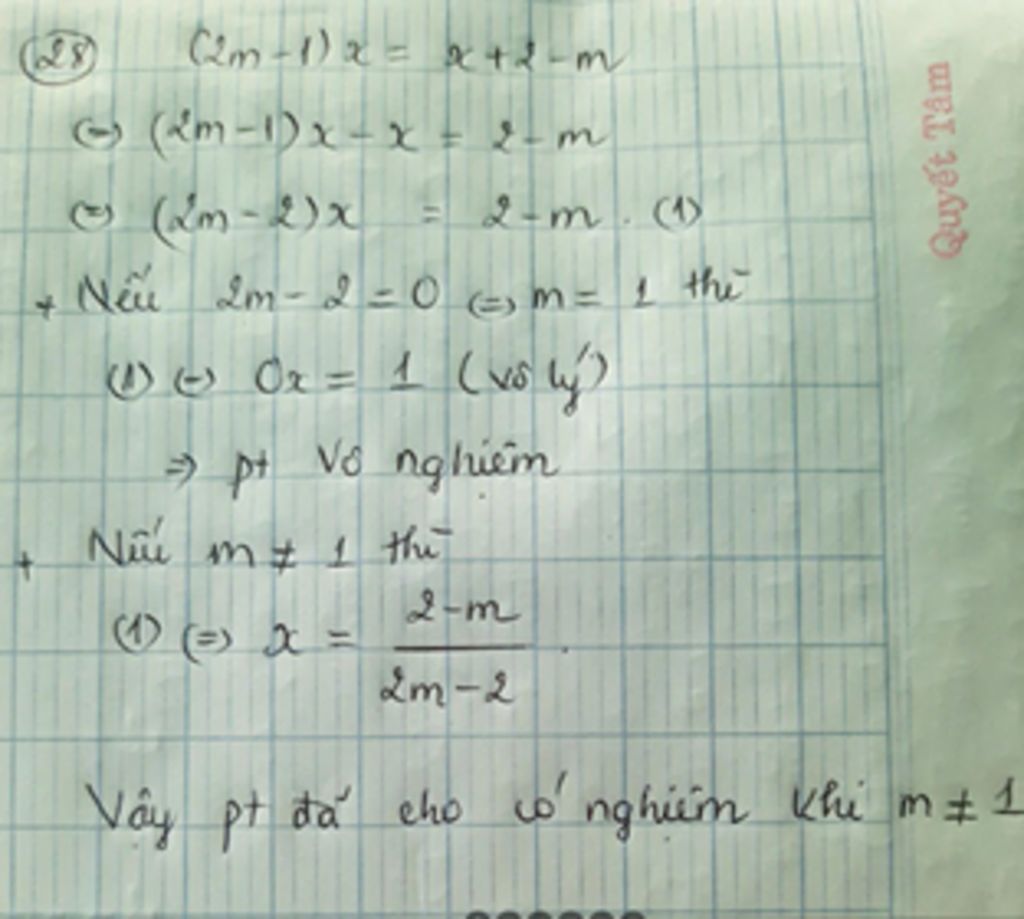 28 (2m-1)x = x+2-m
(=) (2m-1)x - x = 2-m
(=) (2m-2)x = 2-m. (1)
+ Nếu 2m-2=0 (=) m= 1 thì
(1) (=) 0x = 1 (vô lý)
=> pt vô nghiệm
+ Nếu m ≠ 1 thì
(1) (=) x = 2-m / 2m-2 .
Vậy pt đã cho có nghiệm khi m ≠ 1
Quyết Tâm